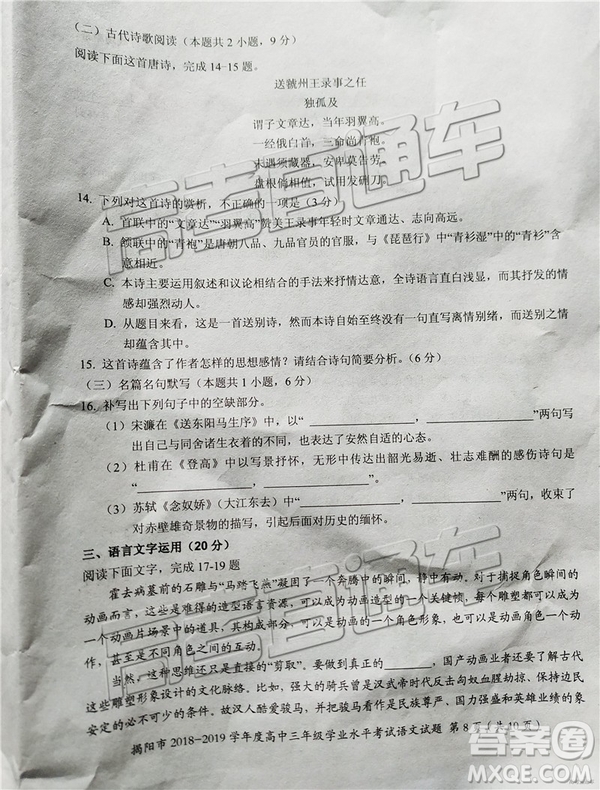 （二）古代诗歌阅读（本题共2小题，9分）
阅读下面这首唐诗，完成14-15题。
送虢州王录事之任
独孤及
谓子文章达，当年羽翼高。
一经俄白首，三命尚青袍。
未遇须藏器，安卑莫告劳。
盘根倘相值，试用发硎刀。
14. 下列对这首诗的赏析，不正确的一项是（3分）
A. 首联中的“文章达”“羽翼高”赞美王录事年轻时文章通达、志向高远。
B. 颔联中的“青袍”是唐朝八品、九品官员的官服，与《琵琶行》中“青衫湿”中的“青衫”含
意相近。
C. 本诗主要运用叙述和议论相结合的手法来抒情达意，全诗语言直白浅显，而其传达的情
感却强烈动人。
D. 从题目来看，这是一首送别诗，然而本诗自始至终没有一句直写离别，这与一般的送别
诗有所不同。
15. 这首诗蕴含了作者怎样的思想感情？请结合诗句简要分析。（6分）
（三）名篇名句默写（本题共1小题，6分）
16. 补写出下列句子中的空缺部分。
（1）宋濂在《送东阳马生序》中，以“ ，”两句写
出自己与同舍诸生衣着的不同，也表现出安然自适的心态。
（2）杜甫在《登高》中以写景抒怀，无形中传达出韶光易逝、壮志难酬的感伤诗句是
“ ，”。
（3）苏轼《念奴娇》（大江东去）中以“ ，”两句，收束了
对赤壁雄奇景物的描写，引起后面对历史的缅怀。
三、语言文字运用（20分）
阅读下面文字，完成17-19题
霍去病墓前的石雕与“马踏飞燕”凝固了一个奔腾中的瞬间，精巧而生动。对于捕捉角色瞬间的
动画而言，这些是难得的造型语言资源，可以成为动画造型的一个关键帧，可以成为
一个动画片场景中的道具，其构成部分，可以成为一个角色形象，也可以是一个角色的动
作，甚至成为一种表现手法。
当然，这种思维还只是直接的“剪取”。要取得 ，国产动画业者还要了解古代
这些雕塑形象设计的文化脉络。比如，强大的骑兵曾是汉武帝时代反击匈奴掳掠、拱卫边境
安定的必不可少的军事力量，所以汉人酷爱骏马，骏马被看作是民族尊严、国力强盛和英雄业绩的象
揭阳市2018-2019学年度高中三年级学业水平考试语文试题 第8页（共10页）
高考直通车
答案圈
MXQE.COM